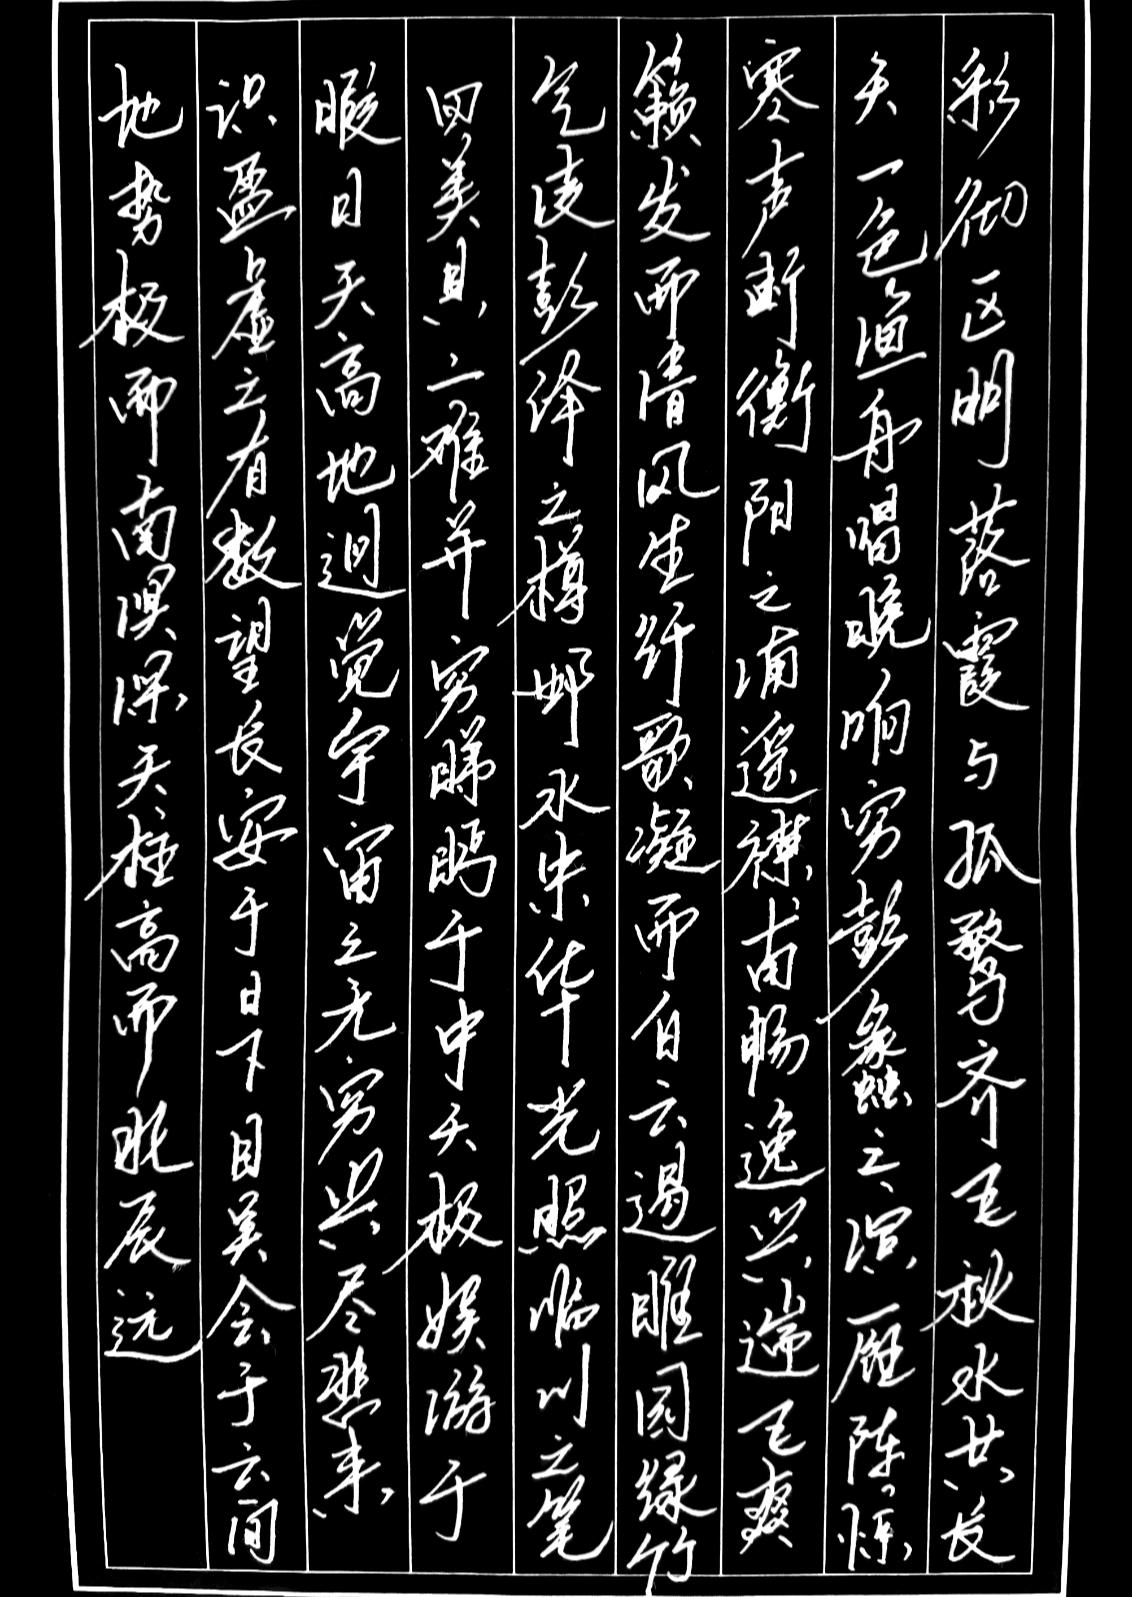 彩彻区明落霞与孤鹜齐飞秋水共长
天一色渔舟唱晚响穷彭蠡之滨雁阵惊
寒声断衡阳之浦遥襟甫畅逸兴遄飞爽
籁发而清风生纤歌凝而白云遏睢园绿竹
气凌彭泽之樽邺水朱华光照临川之笔
四美具二难并穷睇眄于中天极娱游于
暇日天高地迥觉宇宙之无穷兴尽悲来
识盈虚之有数望长安于日下目吴会于云间
地势极而南溟深天柱高而北辰远